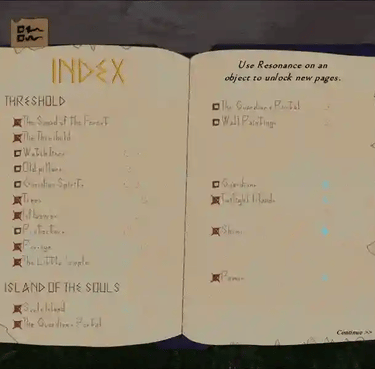 INDEX
THRESHOLD
The Sound of The Forest
The Threshold
Old pillars
Guardian Spirits
Trees
Influences
The Little People
ISLAND OF THE SOULS
Soul Island
The Guardians Portal
Use Resonance on an
object to unlock new pages.
The Guardians Portal
Wall Paintings
Guardians
Twilight Islands
Continue >>